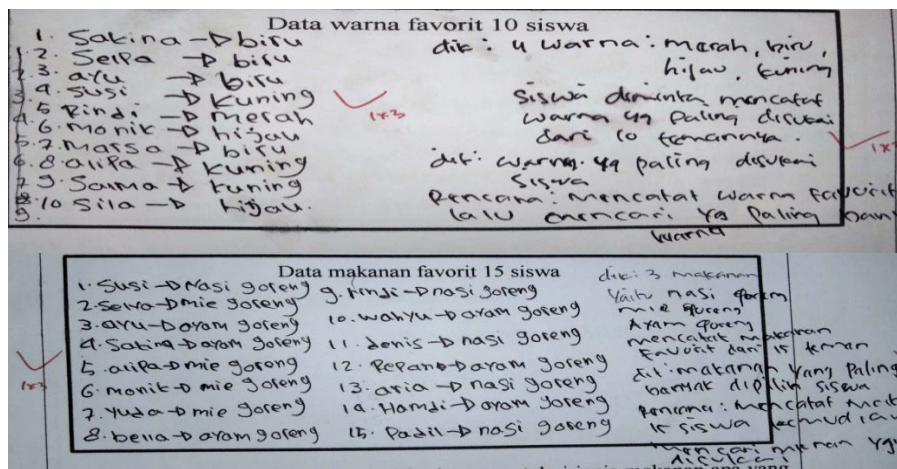 Data warna favorit 10 siswa
1. Sakina → biru
2. Selpa → biru
3. ayu → biru
4. Susi → kuning
5 Rindi → merah
6. monik → hijau
7. Marsa → biru
8. alipa → kuning
9. Salma → kuning
10 Sila → hijau.
dik: 4 warna: merah, biru,
hijau, kuning
siswa diminta mencatat
warna yg paling disukai
dari 10 temannya.
dit: warna yg paling disukai
siswa
Rencana: mencatat warna favorit
lalu mencari yg paling
warna
1x3
1x3
Data makanan favorit 15 siswa
1. Susi → Nasi goreng
2. Selva → mie goreng
3. ayu → ayam goreng
4. Sakina → ayam goreng
5. alipa → mie goreng
6. monik → mie goreng
7. Yuda → mie goreng
8. bella → ayam goreng
9. Rindi → nasi goreng
10. wahyu → ayam goreng
11. denis → nasi goreng
12. Pepano → ayam goreng
13. aria → nasi goreng
14. Hamdi → ayam goreng
15. Padil → nasi goreng
dik: 3 makanan
Yaitu nasi goreng
mie goreng
Ayam goreng
mencatat makanan
Favorit dari 15 teman
dit: makanan yang paling
banyak dipilih siswa
Rencana: mencatat
15 siswa kemudian
mencari yg
disukai
1x3